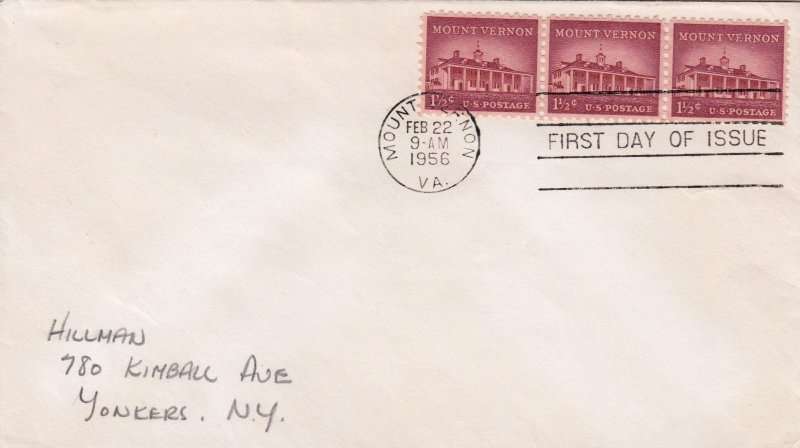 MOUNT VERNON MOUNT VERNON MOUNT VERNON
1½¢ U·S·POSTAGE 1½¢ U·S·POSTAGE 1½¢ U·S·POSTAGE
MOUNT VERNON
FEB 22
9-AM
1956
VA.
FIRST DAY OF ISSUE
HILLMAN
780 KIMBALL AVE
YONKERS. N.Y.